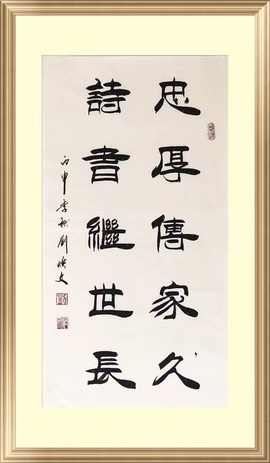 忠厚傳家久
詩書繼世長
丙申季秋劉	文